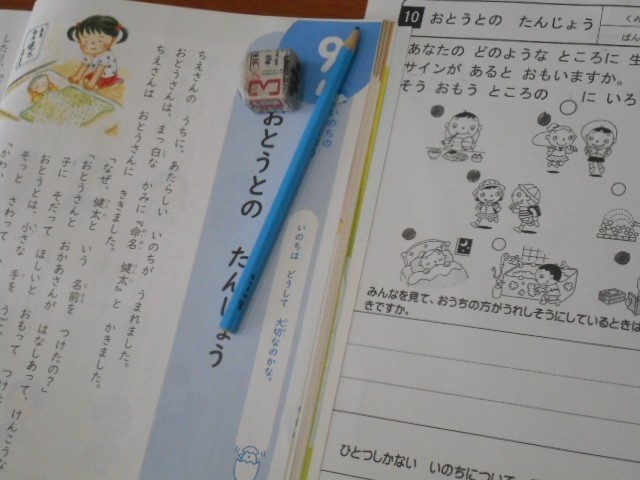 9
いのちの
おとうとの たんじょう
いのちは どうして 大切なのかな。
ちえさんの うちに、あたらしい いのちが うまれました。
おとうさんは、まっ白な かみに「命名 健太」と かきました。
ちえさんは おとうさんに ききました。
「なぜ、健太と いう 名前を つけたの?」
「おとうさんと おかあさんが はなしあって、けんこうな
子に そだって ほしいと おもって つけた
おとうとは、小さな 手を
そっと さわって
10 おとうとの たんじょう
あなたの どのような ところに 生
サインが あると おもいますか。
そう おもう ところの ○ に いろ
みんなを見て、おうちの方がうれしそうにしているときは
きですか。
ひとつしかない いのちについて